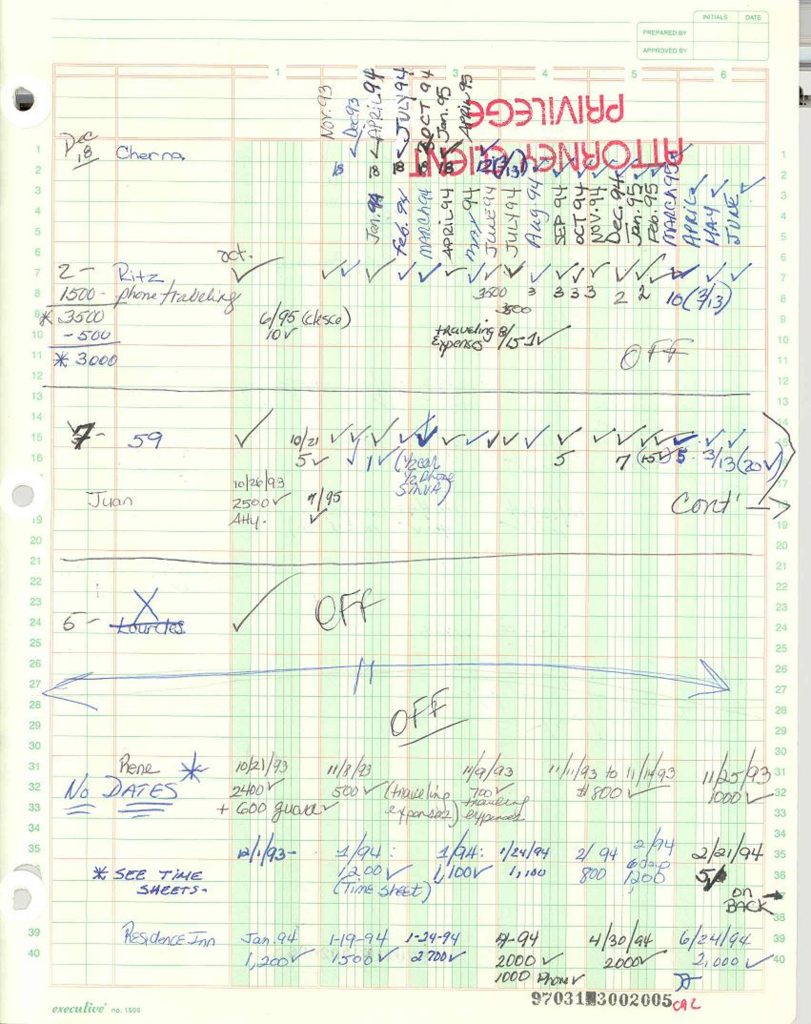 INITIALS DATE
PREPARED BY
APPROVED BY
1 2 3 4 5 6
ATTORNEY CLIENT
PRIVILEGE
Nov. 93
Dec 93
APRIL 94
JULY 94
OCT 94
Jan. 95
APRIL 95
Dec 18
Cherna
18 18 18 18
Jan. 94
Feb. 94
MARCH 94
APRIL 94
MAY 94
JUNE 94
JULY 94
Aug 94
SEP 94
OCT 94
NOV. 94
Dec. 94
Jan. 95
Feb. 95
MARCH 95
APRIL ✓
MAY ✓
JUNE ✓
oct.
2 - Ritz ✓ ✓ ✓ ✓ ✓ ✓ ✓ ✓ ✓ ✓ ✓ ✓ ✓ ✓ ✓ ✓ ✓ ✓ ✓
1500- phone traveling 3500 3 3 3 3 2 2 10 (3/13)
3500
* 3500 6/95 (clesco)
- 500 10 ✓ traveling expenses 8/15 1 ✓
* 3000 OFF
7 - 59 ✓ 10/21 ✓ ✓ ✓ ✓ ✓ ✓ ✓ ✓ ✓ ✓ ✓ ✓ ✓ ✓ ✓ ✓ ✓
5 ✓ ✓ 1 ✓ (1/2 car 5 7 (15 ✓) 5 3/13 (20 ✓)
1/2 phone
10/26/93
Juan 2500 ✓ 7/95 Cont' →
Atty. ✓
X
5 - Lourdes ✓ OFF
OFF
Rene * 10/21/93 11/8/93 11/9/93 11/11/93 to 11/14/93 11/25/93
NO DATES 2400 ✓ 500 ✓ (traveling expenses) 700 ✓ traveling expenses $800 ✓ 1000 ✓
+ 600 guard ✓
12/1/93- 1/94: 1/94: 1/24/94 2/94 2/94 2/21/94
* SEE TIME SHEETS- 1,200 ✓ 1,100 ✓ 1,100 800 6 days 1200
(Time sheet)
on BACK →
Residence Inn Jan. 94 1-19-94 1-24-94 4-94 4/30/94 6/24/94
1,200 ✓ 1500 ✓ 2700 ✓ 2000 ✓ 2000 ✓ 2,000 ✓
1000 Phone ✓
executive® no. 1506